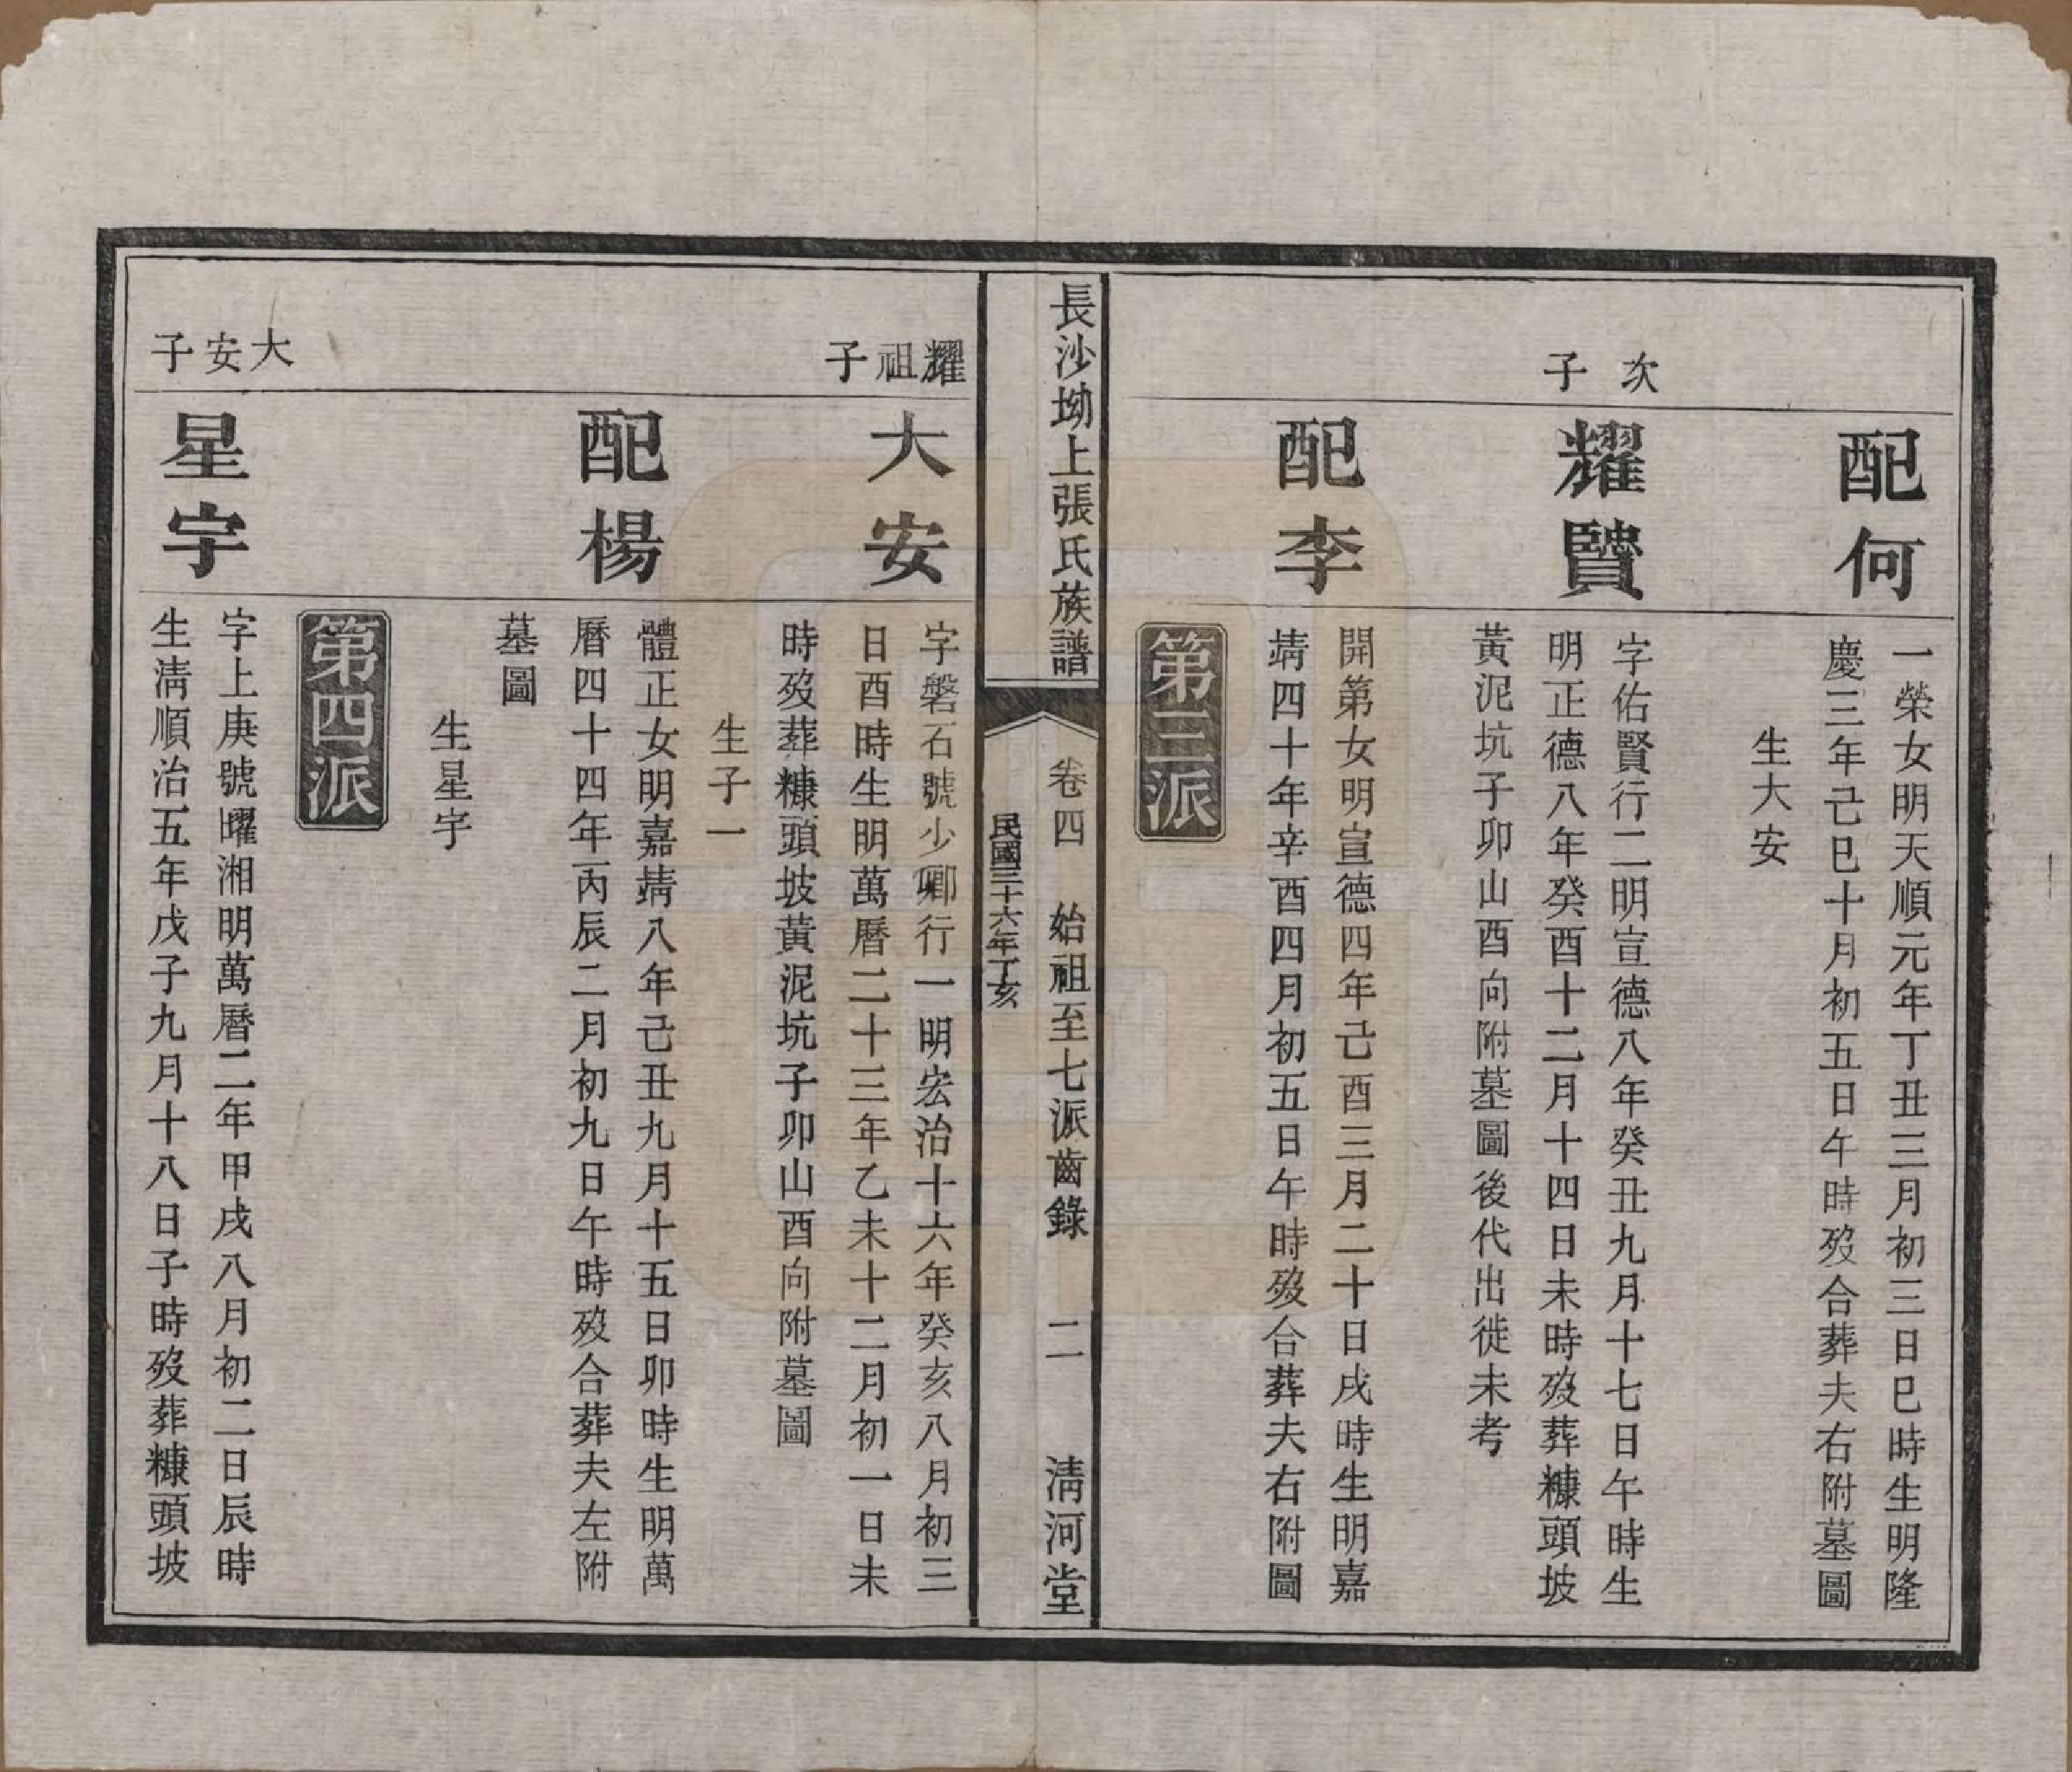 配何
一榮女明天順元年丁丑三月初三日巳時生明隆
慶三年己巳十月初五日午時歿合葬夫右附墓圖
生大安
次子
耀賢
字佑賢行二明宣德八年癸丑九月十七日午時生
明正德八年癸酉十二月十四日未時歿葬糠頭坡
黃泥坑子卯山酉向附墓圖後代出徙未考
配李
開第女明宣德四年己酉三月二十日戌時生明嘉
靖四十年辛酉四月初五日午時歿合葬夫右附圖
第三派
長沙坳上張氏族譜
卷四 始祖至七派齒錄 二 清河堂
民國三十六年丁亥
耀祖子
大安
字磐石號少卿行一明宏治十六年癸亥八月初三
日酉時生明萬曆二十三年乙未十二月初一日未
時歿葬糠頭坡黃泥坑子卯山酉向附墓圖
生子一
配楊
體正女明嘉靖八年己丑九月十五日卯時生明萬
曆四十四年丙辰二月初九日午時歿合葬夫左附
墓圖
生星宇
第四派
大安子
星宇
字上庚號曜湘明萬曆二年甲戌八月初二日辰時
生清順治五年戊子九月十八日子時歿葬糠頭坡